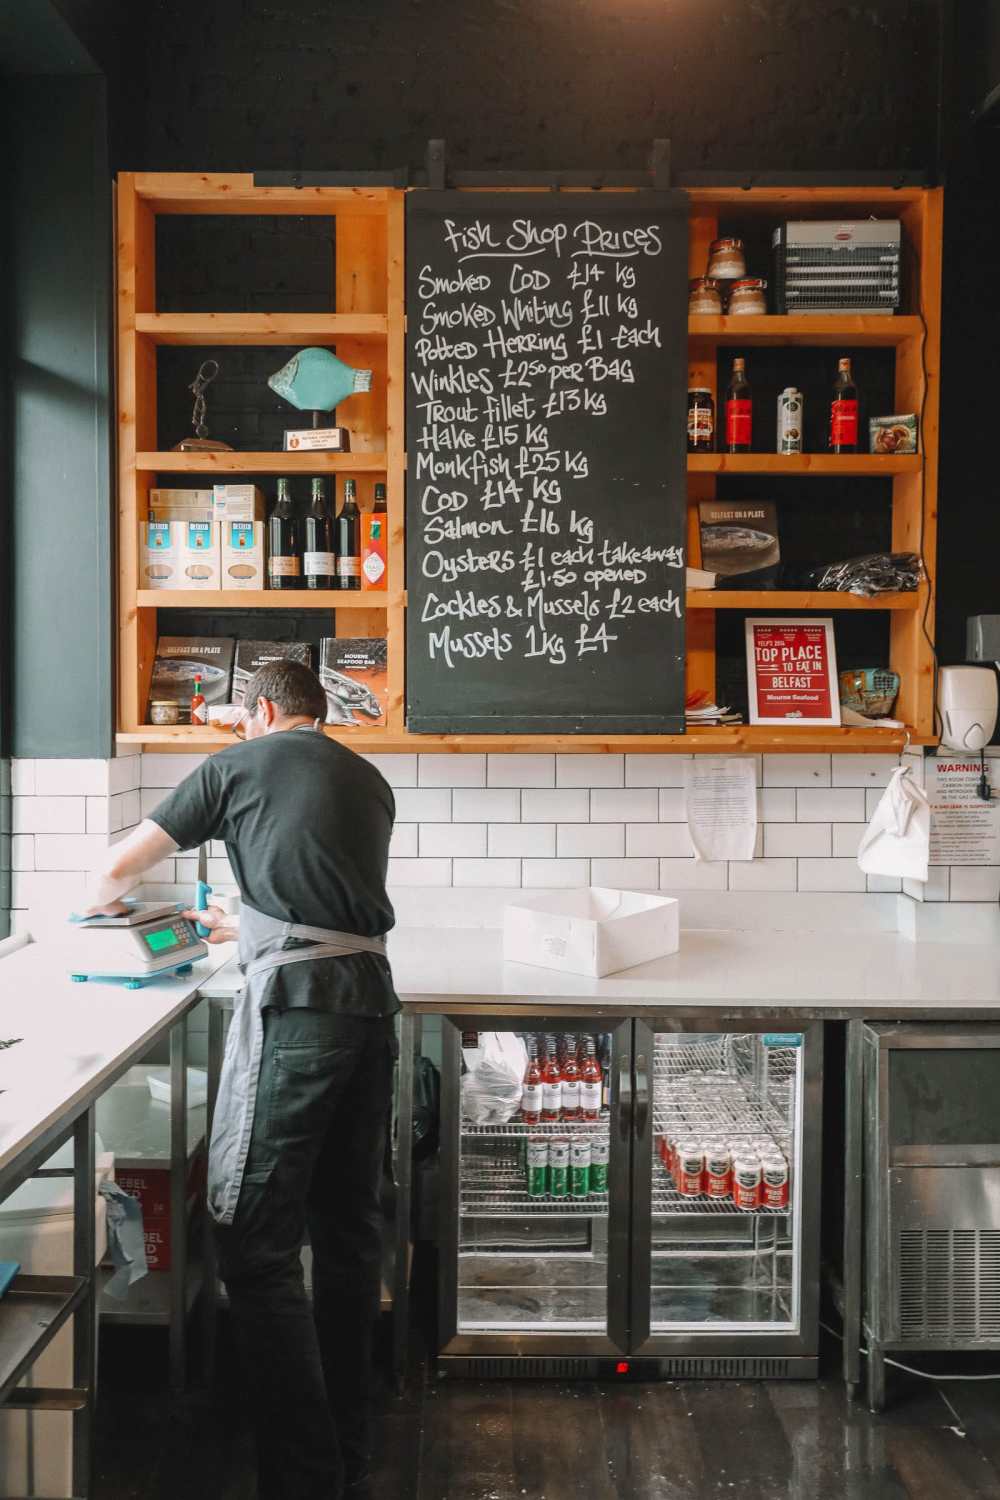 Fish Shop Prices
Smoked Cod £14 kg
Smoked Whiting £11 kg
Potted Herring £1 Each
Winkles £2.50 per Bag
Trout fillet £13 kg
Hake £15 kg
Monkfish £25 kg
Cod £14 kg
Salmon £16 kg
Oysters £1 each takeaway
£1.50 opened
Cockles & Mussels £2 each
Mussels 1kg £4
BELFAST ON A PLATE
BELFAST ON A PLATE
MOURNE
MOURNE
SEAFOOD BAR
YELP'S
TOP PLACE
TO EAT IN
BELFAST
Mourne Seafood
WARNING
REBEL
RED
REBEL
RED